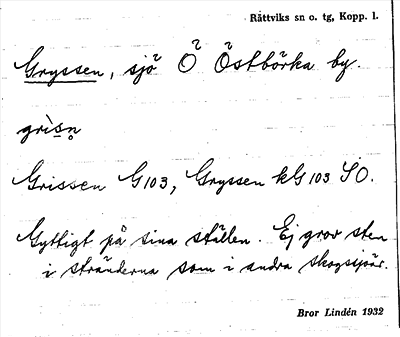 Rättviks sn o. tg, Kopp. l.
Gryssen, sjö Ö Östbörka by.
grisn
Grissen G103, Gryssen kG103 SO.
Gyttigt på sina ställen. Ej grov sten
i stränderna som i andra skogssjöar.
Bror Lindén 1932